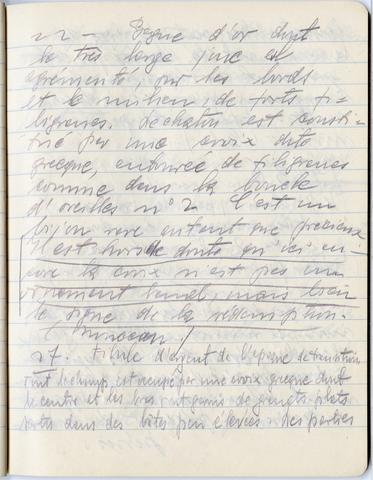 22 – Bague d'or dont
la très large jonc est
agrémenté, sur les bords
et le milieu, de forts fi=
ligranes. Le chaton est consti=
tué par une croix dite
grecque, entourée de filigranes
comme dans la boucle
d'oreilles n° 2. C'est un
bijou rare autant que précieux
Il est hors de doute qu'ici en=
core la croix n'est pas un
ornement banal, mais bien
le signe de la rédemption.
27. Fibule d'argent de l'époque de transition
dont le champ est occupé par une croix grecque dont
le centre et les bras sont garnis de grenats plats
sertis dans des bâtes peu élevées : des parties